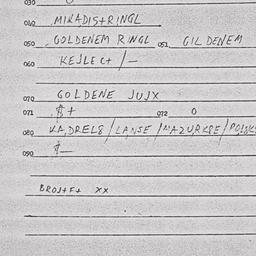 030
040 MIKADISTRINGL
050 GOLDENEM RINGL 051 GILDENEM
060 KEJLECH / —
070 GOLDENE JUJX
071 $ + 072 0
080 KADRELS / LANSE / MAZURKPE /
090 $ —
BROJTFT XX